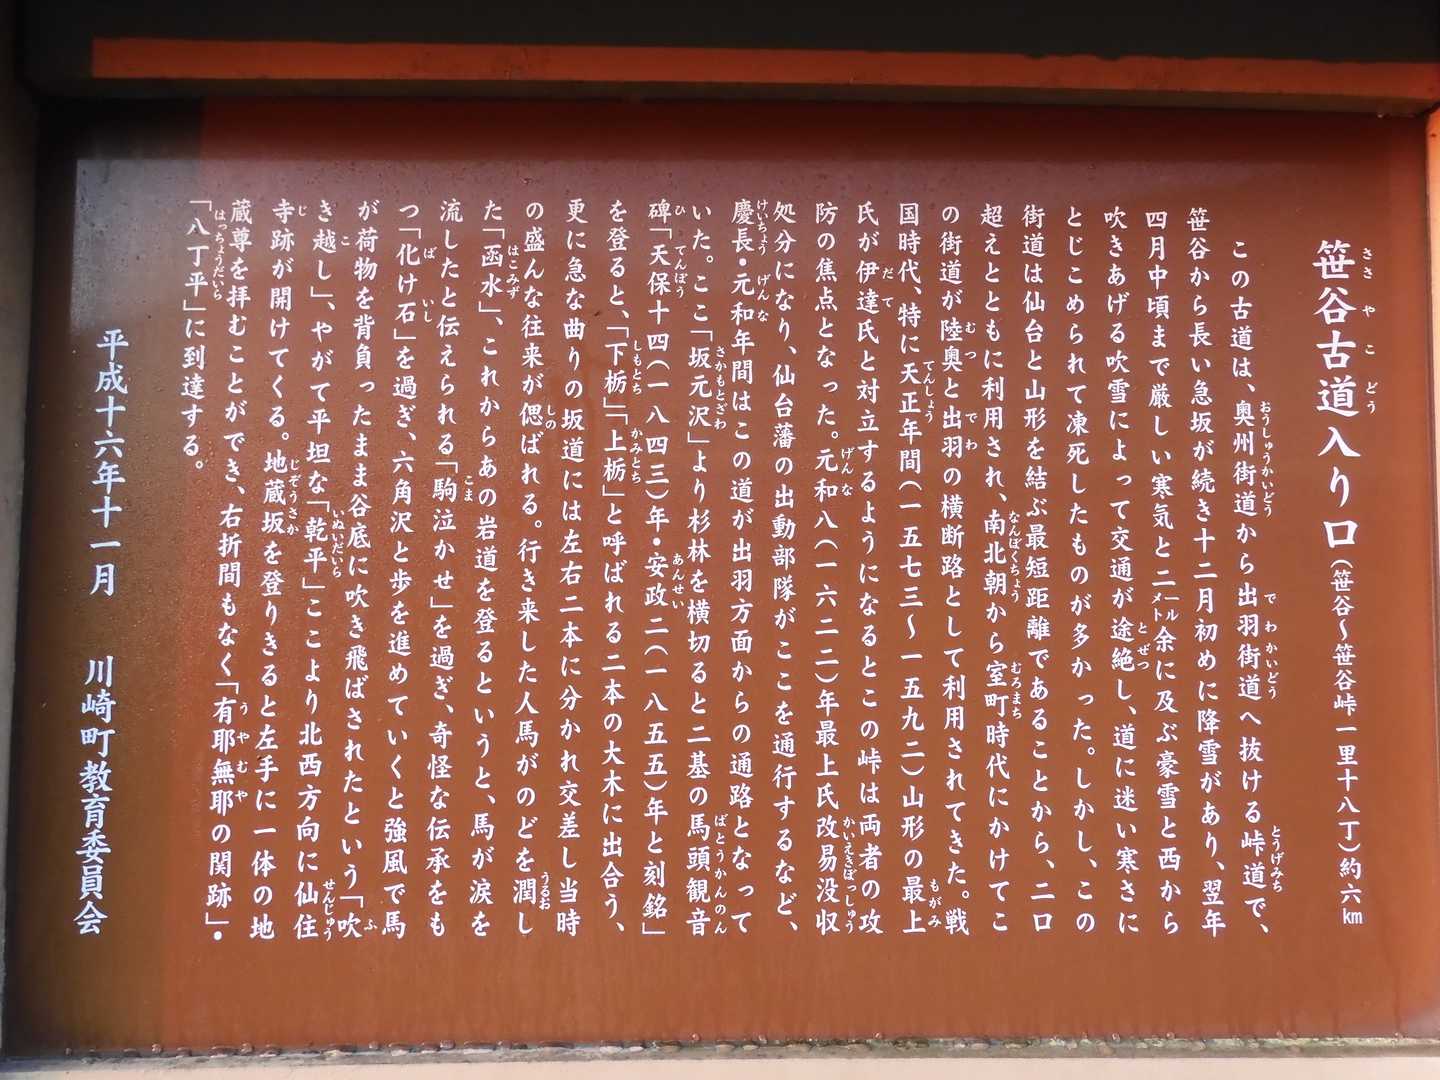 笹谷古道入り口（笹谷～笹谷峠一里十八丁）約六km
この古道は、奥州街道から出羽街道へ抜ける峠道で、
笹谷から長い急坂が続き十二月初めに降雪があり、翌年
四月中頃まで厳しい寒気と二メートル余に及ぶ豪雪と西から
吹きあげる吹雪によって交通が途絶し、道に迷い寒さに
とじこめられて凍死したものが多かった。しかし、この
街道は仙台と山形を結ぶ最短距離であることから、二口
超えとともに利用され、南北朝から室町時代にかけてこ
の街道が陸奥と出羽の横断路として利用されてきた。戦
国時代、特に天正年間（一五七三～一五九二）山形の最上
氏が伊達氏と対立するようになるとこの峠は両者の攻
防の焦点となった。元和八（一六二二）年最上氏改易没収
処分になり、仙台藩の出動部隊がここを通行するなど、
慶長・元和年間はこの道が出羽方面からの通路となって
いた。ここ「坂元沢」より杉林を横切ると二基の馬頭観音
碑「天保十四（一八四三）年・安政二（一八五五）年と刻銘」
を登ると、「下栃」「上栃」と呼ばれる二本の大木に出合う、
更に急な曲りの坂道には左右二本に分かれ交差し当時
の盛んな往来が偲ばれる。行き来した人馬がのどを潤し
た「函水」、これからあの岩道を登るというと、馬が涙を
流したと伝えられる「駒泣かせ」を過ぎ、奇怪な伝承をも
つ「化け石」を過ぎ、六角沢と歩を進めていくと強風で馬
が荷物を背負ったまま谷底に吹き飛ばされたという「吹
き越し」、やがて平坦な「乾平」ここより北西方向に仙住
寺跡が開けてくる。地蔵坂を登りきると左手に一体の地
蔵尊を拝むことができ、右折間もなく「有耶無耶の関跡」・
「八丁平」に到達する。
平成十六年十一月　川崎町教育委員会